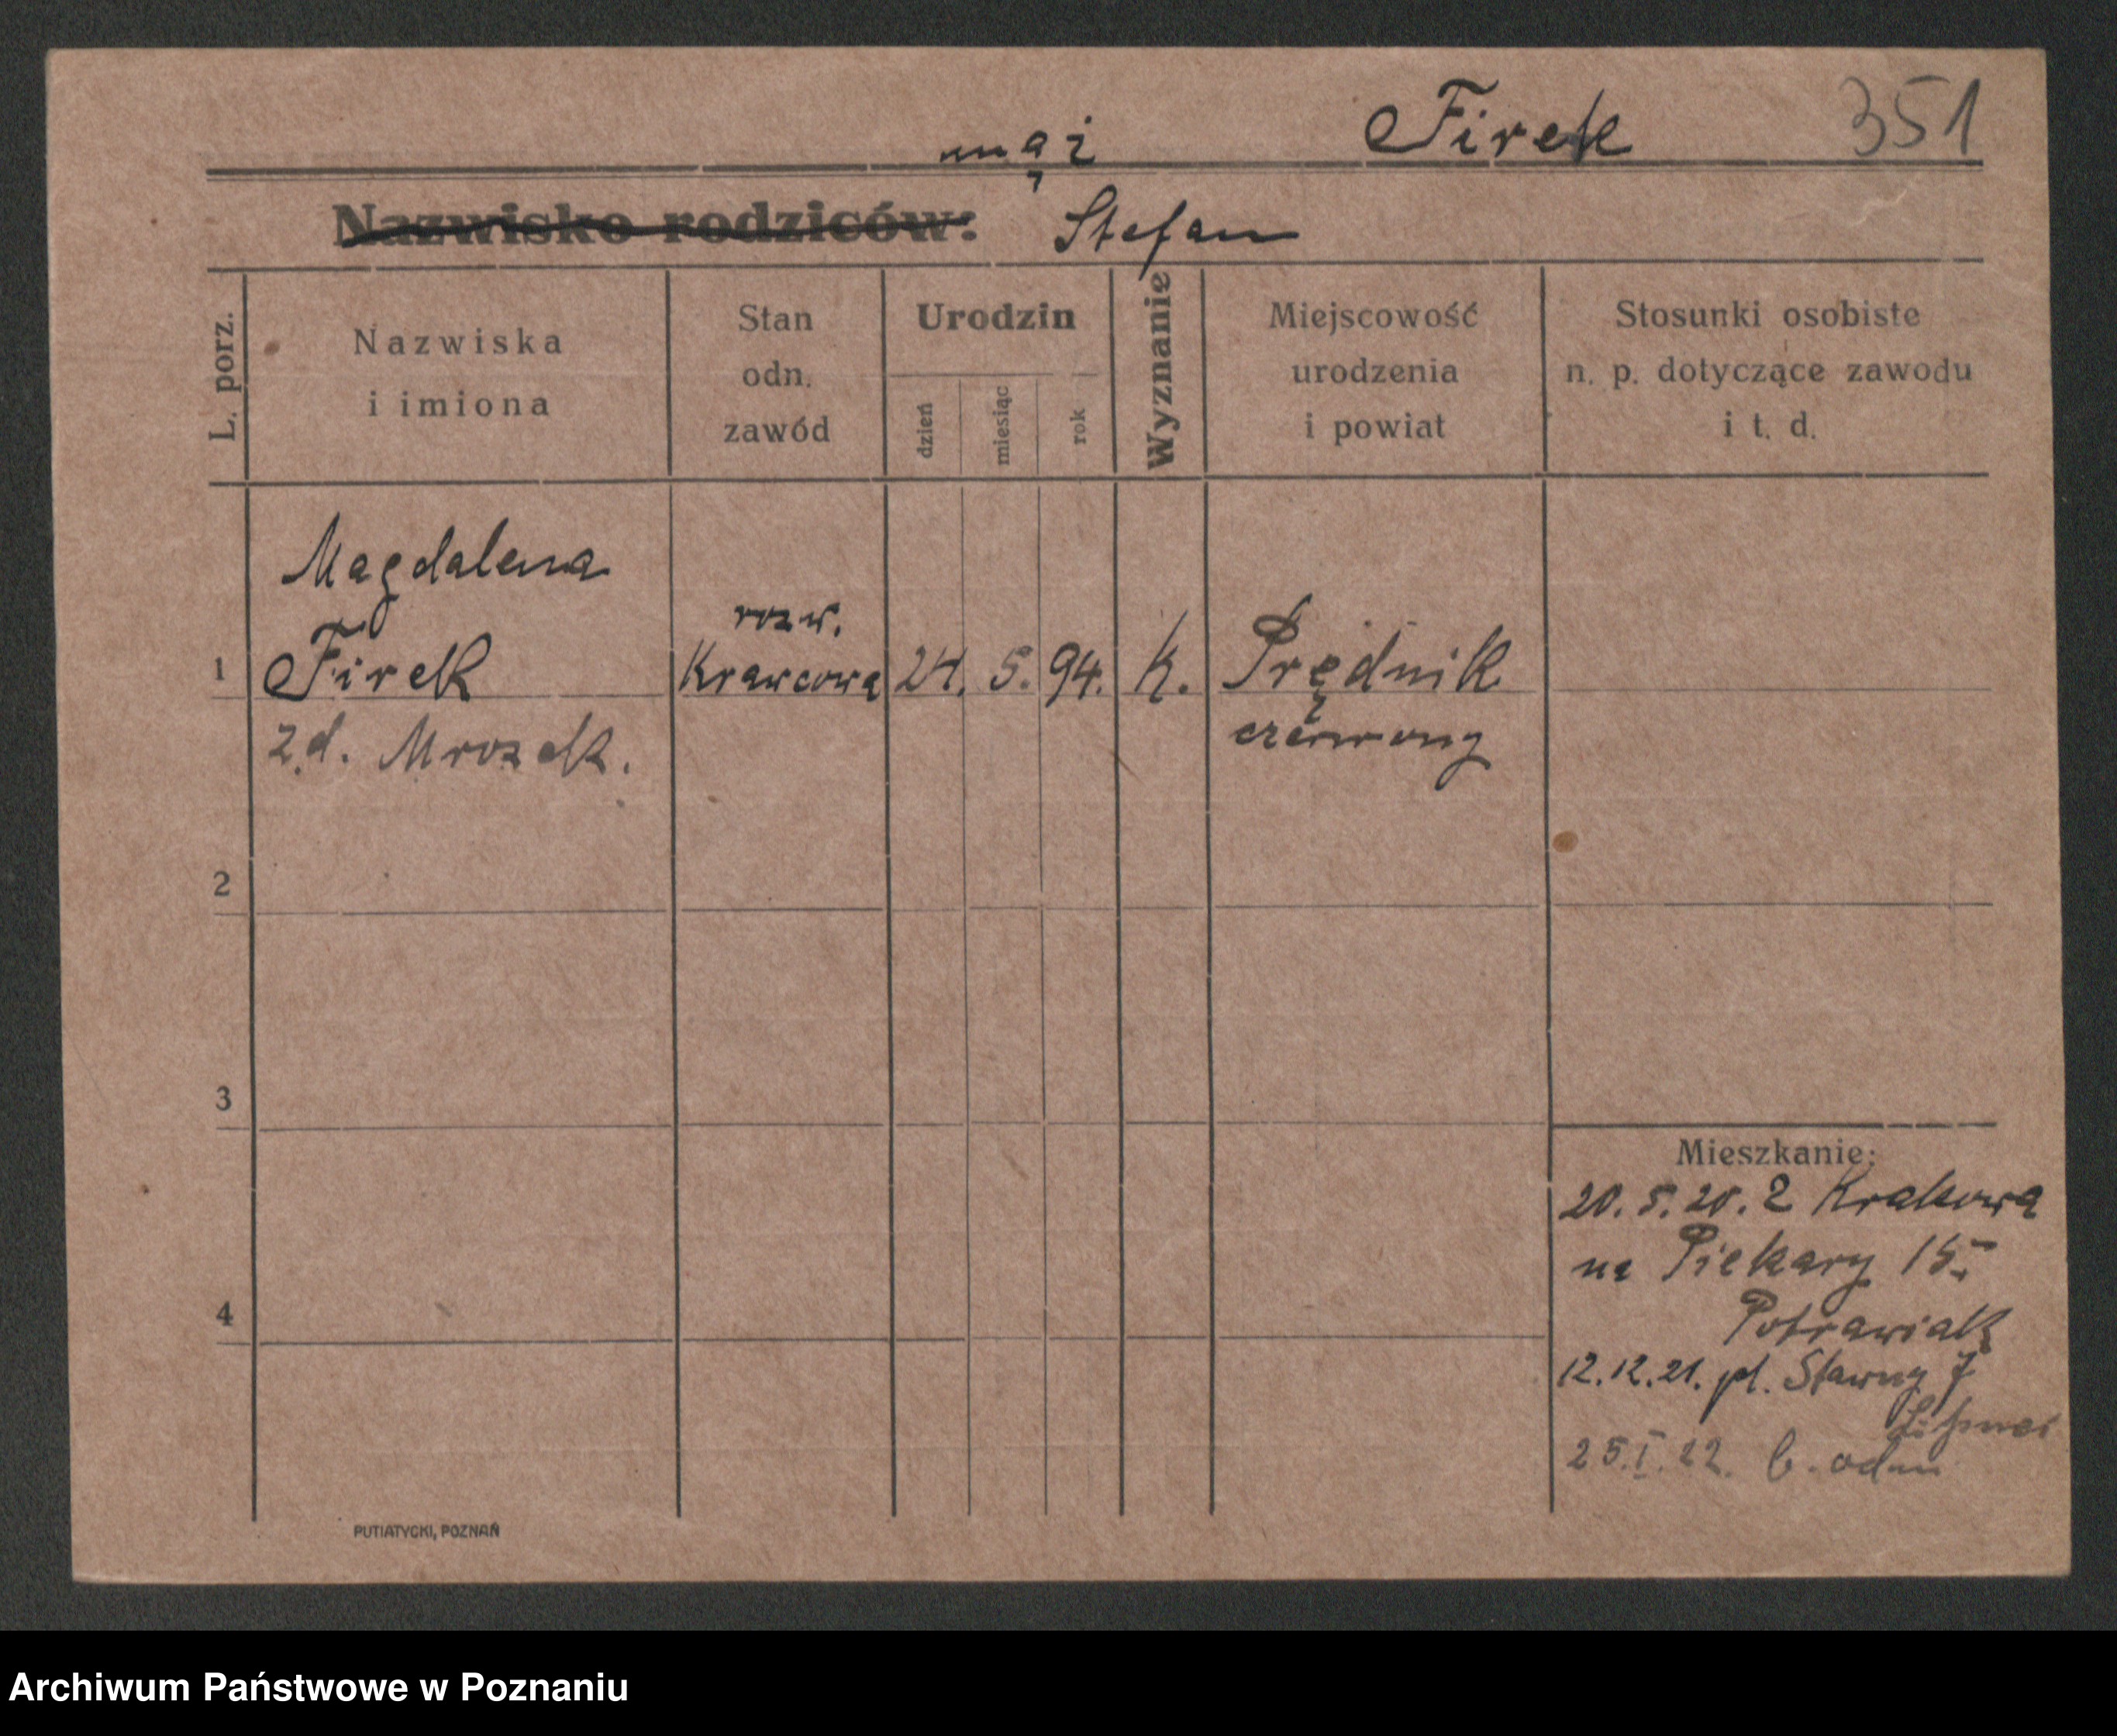 mąż Firek 351
Nazwisko rodziców: Stefan
L. porz.
Nazwiska
i imiona
Stan
odn.
zawód
Urodzin
dzień
miesiąc
rok
Wyznanie
Miejscowość
urodzenia
i powiat
Stosunki osobiste
n. p. dotyczące zawodu
i t. d.
Magdalena
rozw.
1 Firek Krawcowa 24. 5. 94. k. Prędnik
z d. Mrozek. czerwony
2
3
4
Mieszkanie:
20. 5. 20. Z Krakowa
na Piekary 15.
Potrawiak
12.12.21. pl. Sławny 7
25.I.22. b. odm
PUTIATYCKI, POZNAŃ
Archiwum Państwowe w Poznaniu